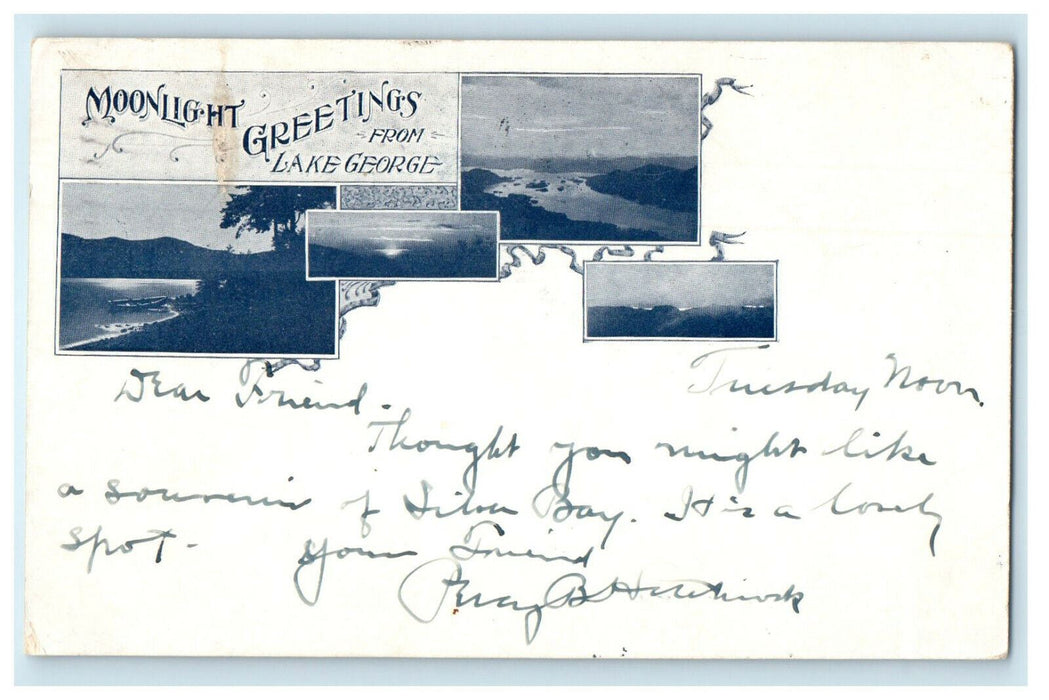 MOONLIGHT
GREETINGS
FROM
LAKE GEORGE
Tuesday Noon.
Dear Friend.
Thought you might like
a souvenir of Silver Bay. It is a lovely
spot. Your Friend
Percy B Hitchcock